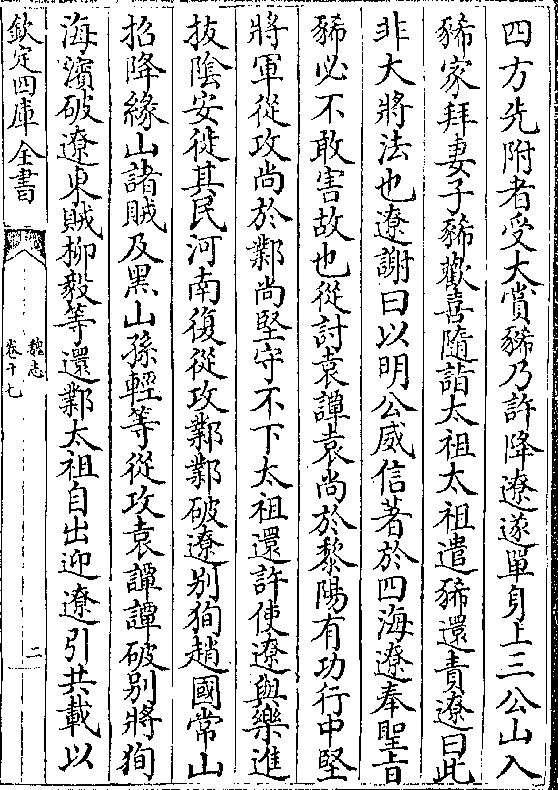 四方先附者受大賞豨乃許降遼遂單身上三公山入
豨家拜妻子豨歡喜隨詣太祖太祖遣豨還責遼曰此
非大將法也遼謝曰以明公威信著於四海遼奉聖旨
豨必不敢害故也從討袁譚袁尚於黎陽有功行中堅
將軍從攻尚於鄴尚堅守不下太祖還許使遼與樂進
拔陰安徙其民河南復從攻鄴鄴破遼别狥趙國常山
招降緣山諸賊及黑山孫輕等從攻袁譚譚破别將狥
海濵破遼東賊柳毅等還鄴太祖自出迎遼引共載以
欽定四庫全書
魏志
卷十七
二